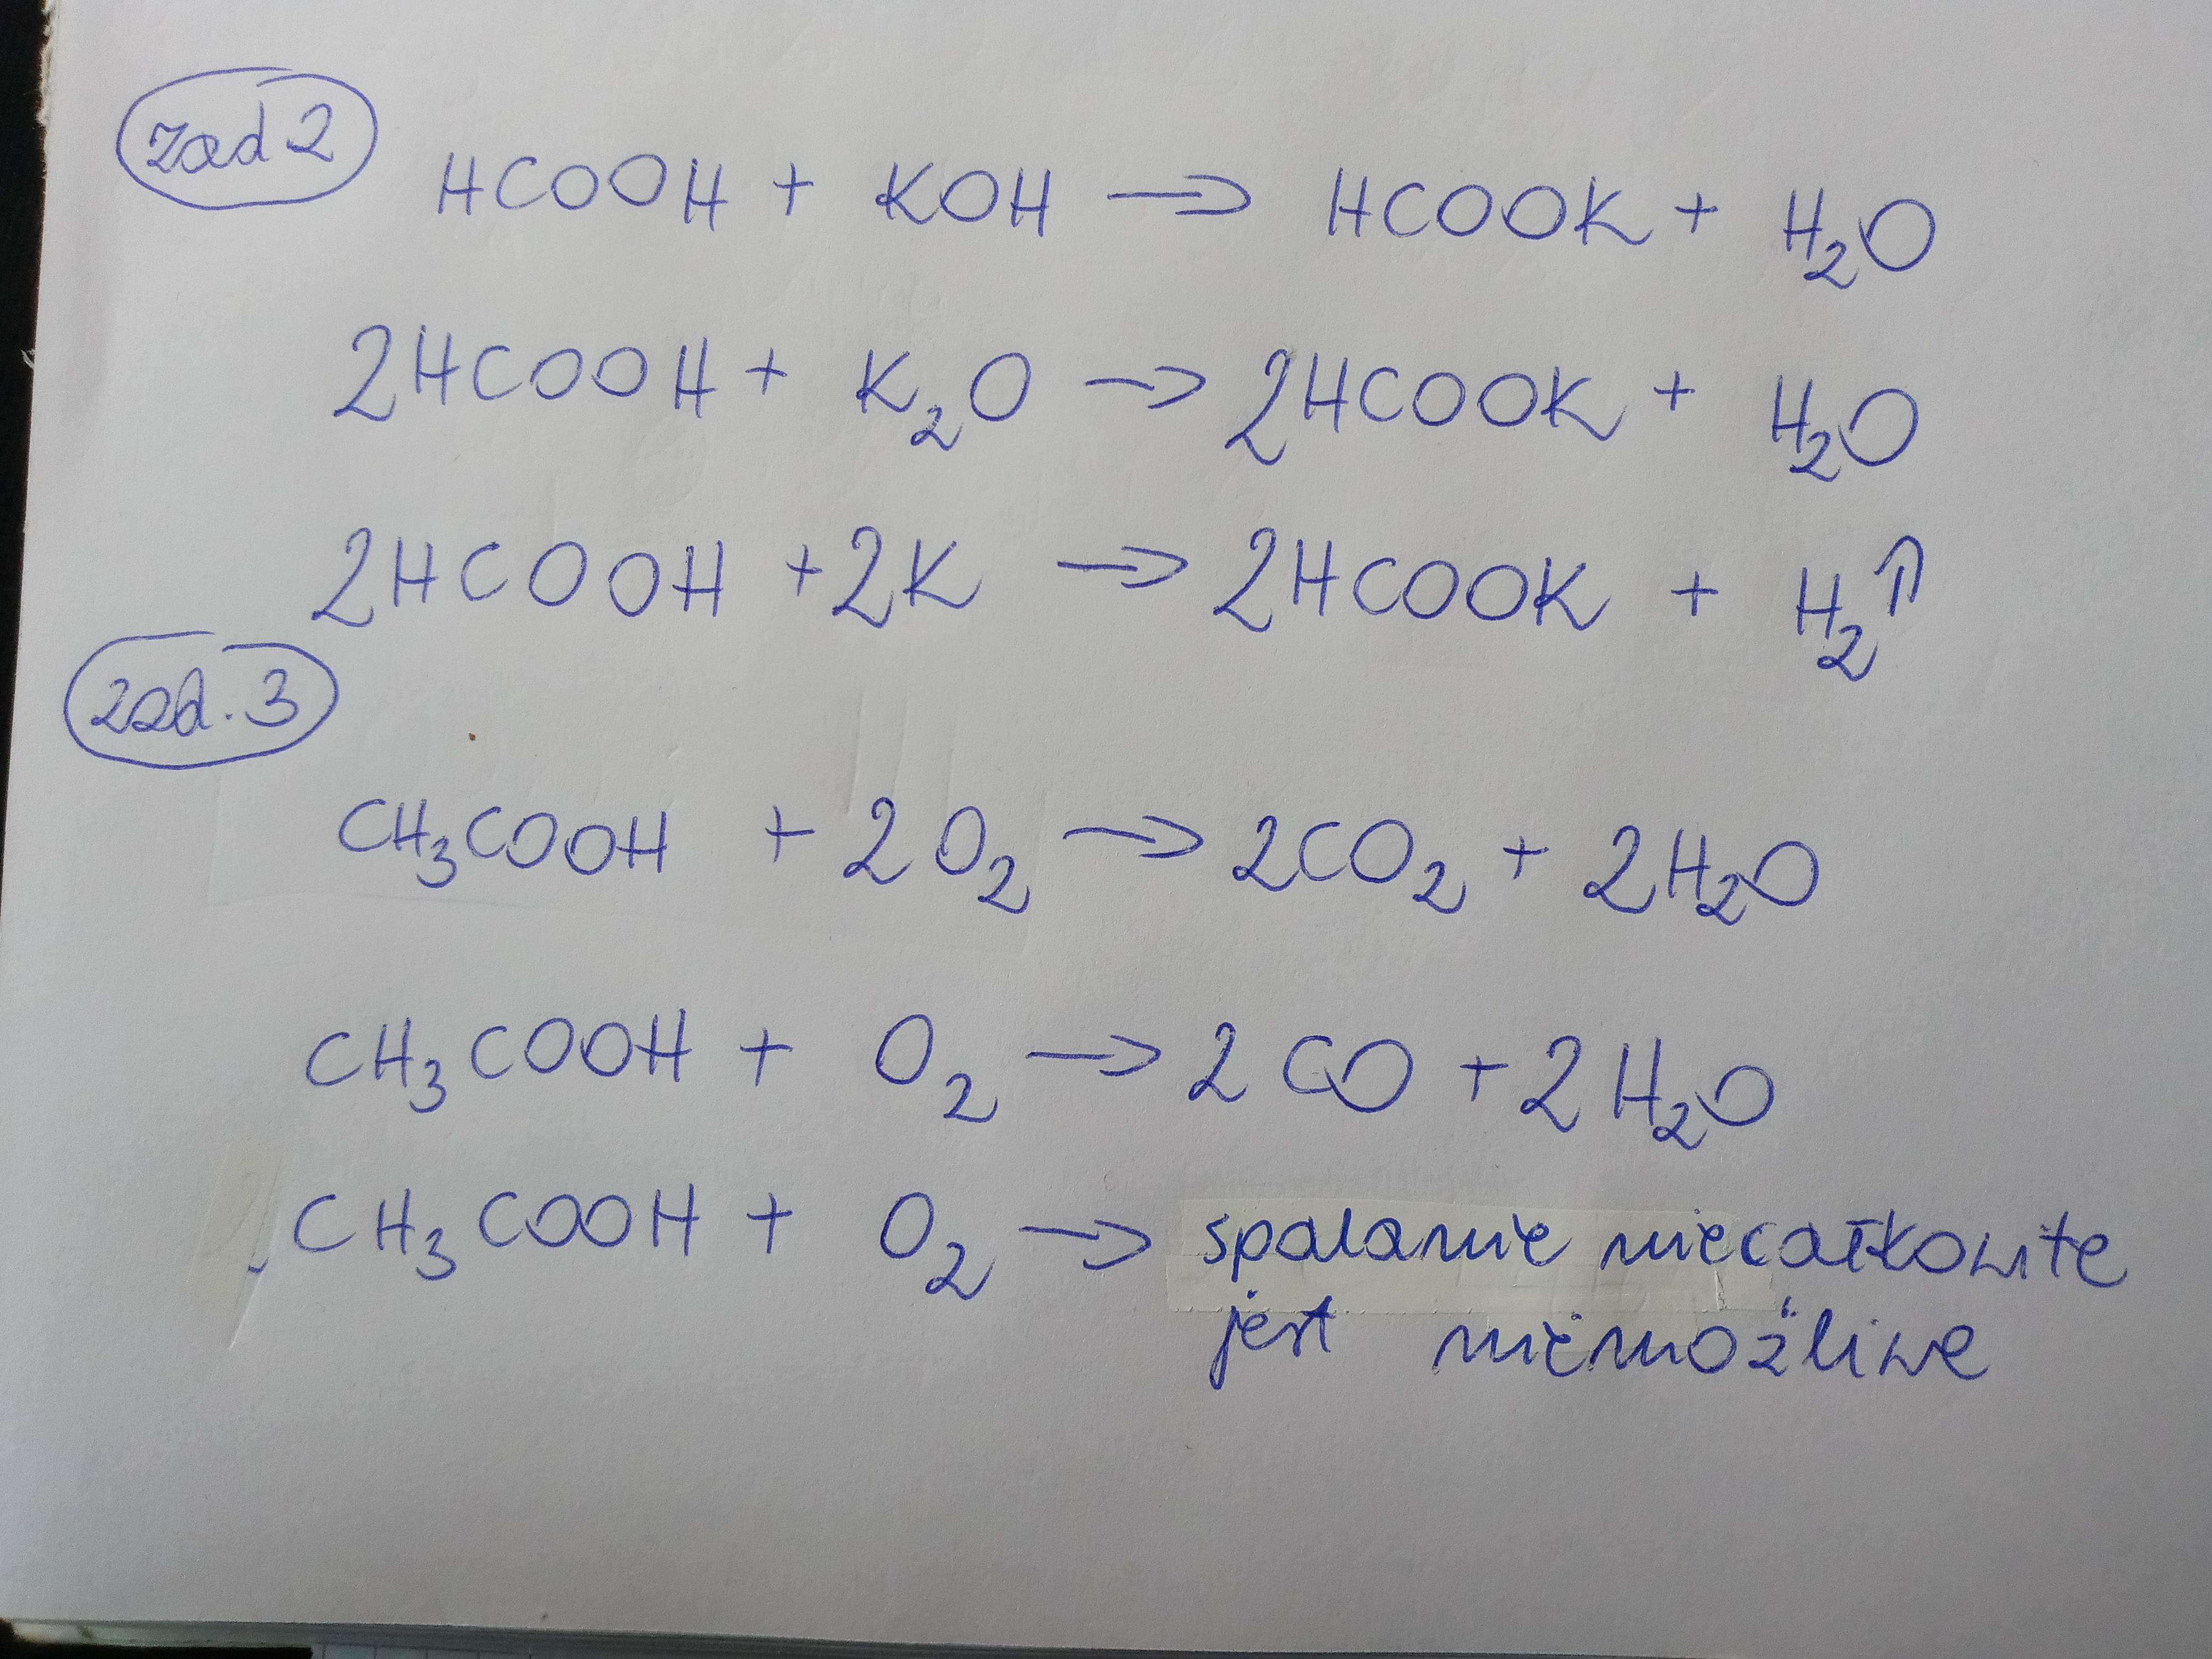 zad 2
HCOOH + KOH → HCOOK + H₂O
2HCOOH + K₂O → 2HCOOK + H₂O
2HCOOH + 2K → 2HCOOK + H₂↑
zad. 3
CH₃COOH + 2O₂ → 2CO₂ + 2H₂O
CH₃COOH + O₂ → 2CO + 2H₂O
CH₃COOH + O₂ → spalanie niecałkowite
jest niemożliwe